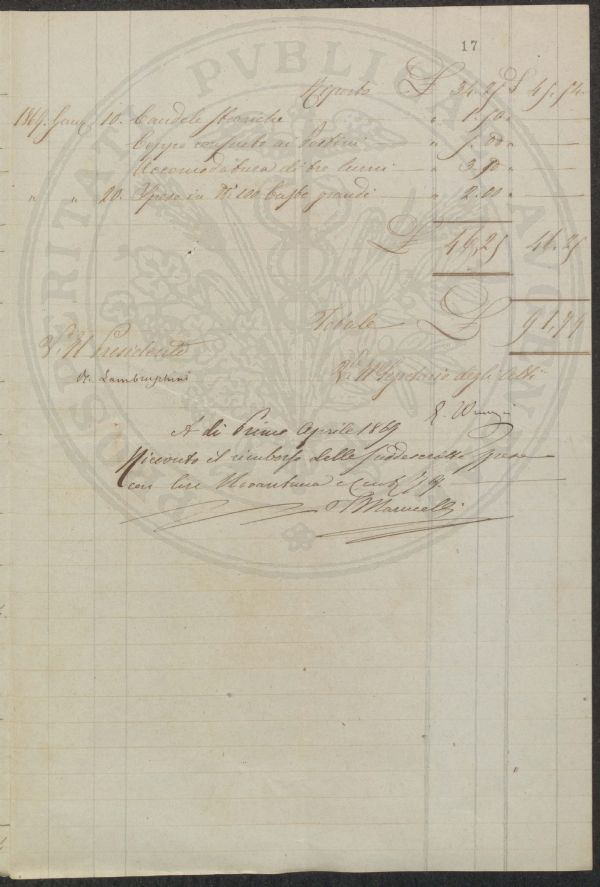 17
Riporto £ 34.25 £ 45.54
1869. Genn 10. Candele steariche " 1.50 "
Ceppo consueto ai Postini " 5.00 "
Accomodatura di tre lumi " 3.50 "
" " 20. Spese in N: 100 buste grandi " 2.00 "
£ 46,25 46.25
Totale £ 91,79
V. Il Presidente
R. Lambruschini
V. Il Segretario degli Atti
A di Primo Aprile 1869
Ricevuto il rimborso delle suddescritte spese
con lire Novantuna e Cent 79
Marucelli
PUBLICAE